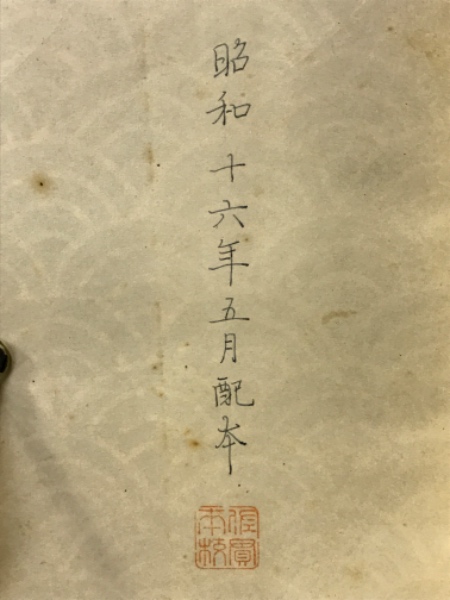 昭和十六年五月配本